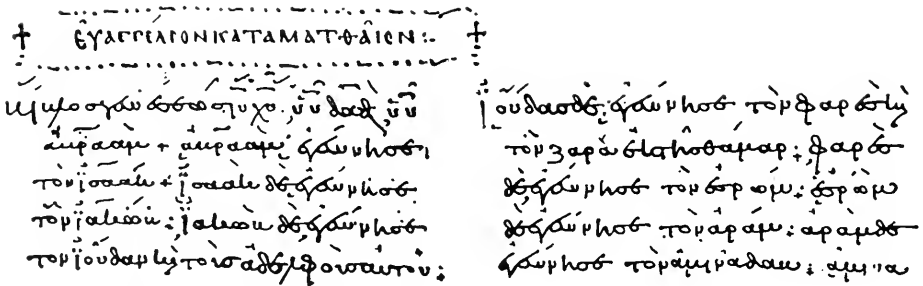 † ΕΥΑΓΓΕΛΙΟΝ ΚΑΤΑ ΜΑΤΘΑΙΟΝ :· †
Βίβλος γενέσεως ἰ̅υ̅ χ̅υ̅ υ̅υ̅ δα̅δ̅ υ̅υ̅
ἀβραάμ + ἀβραὰμ ἐγέννησε
τὸν ἰσαάκ + ἰσαὰκ δὲ ἐγέννησε
τὸν ἰακώβ : ἰακὼβ δὲ ἐγέννησε
τὸν ἰούδαν κ(αὶ) τοὺς ἀδελφοὺς αὐτοῦ :
ἰούδας δὲ ἐγέννησε τὸν φαρὲς κ(αὶ)
τὸν ζαρὰ ἐκ τῆς θάμαρ : φαρὲς
δὲ ἐγέννησε τὸν ἐσρώμ : ἐσρὼμ
δὲ ἐγέννησε τὸν ἀράμ : ἀρὰμ δὲ
ἐγέννησε τὸν ἀμιναδάβ : ἀμινα